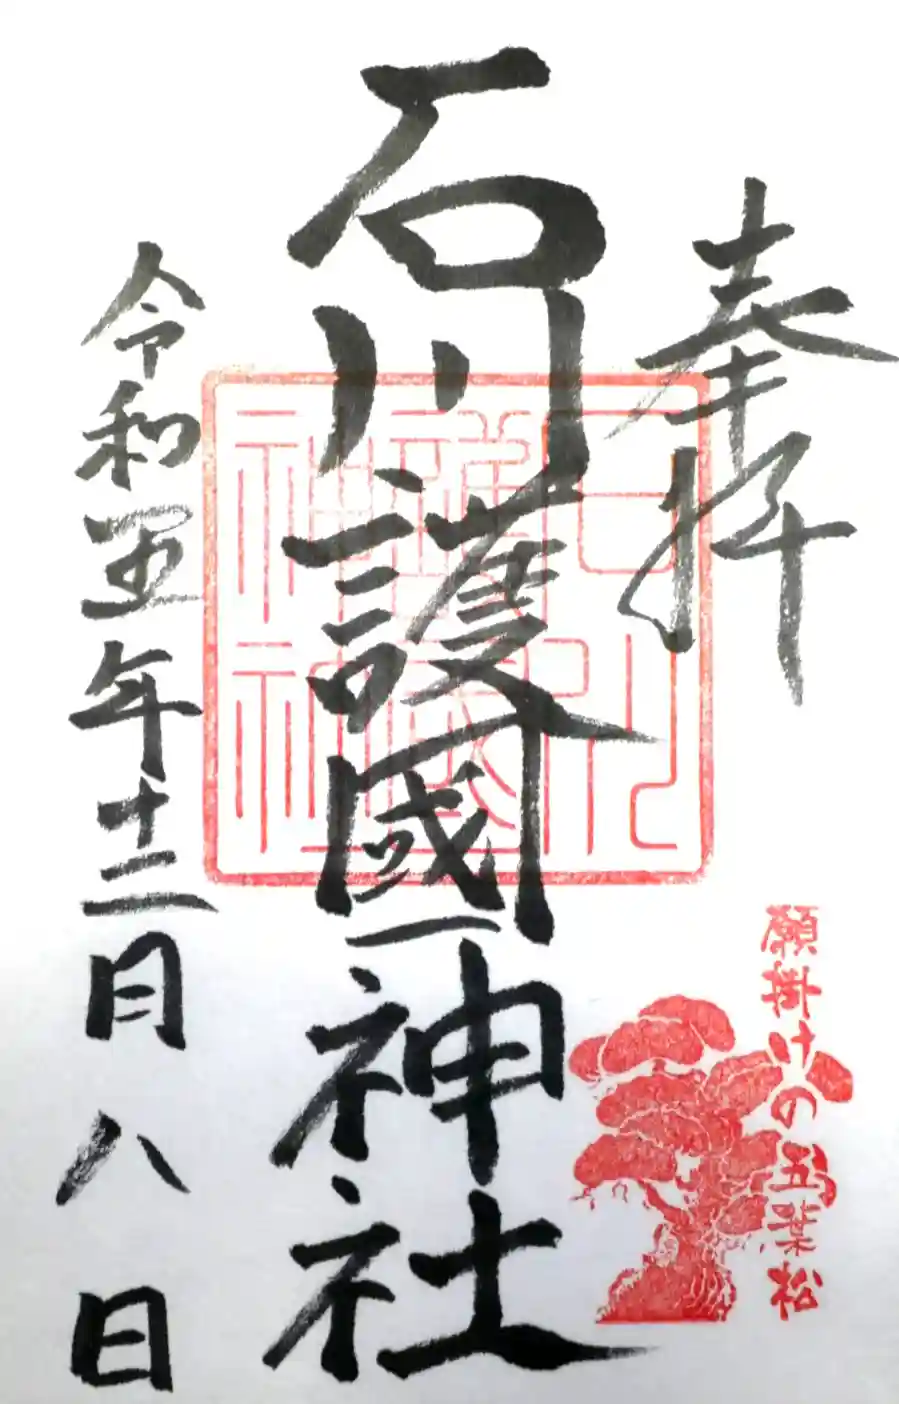 奉拝
願掛けの五葉松
石川護國神社
令和五年十二月八日